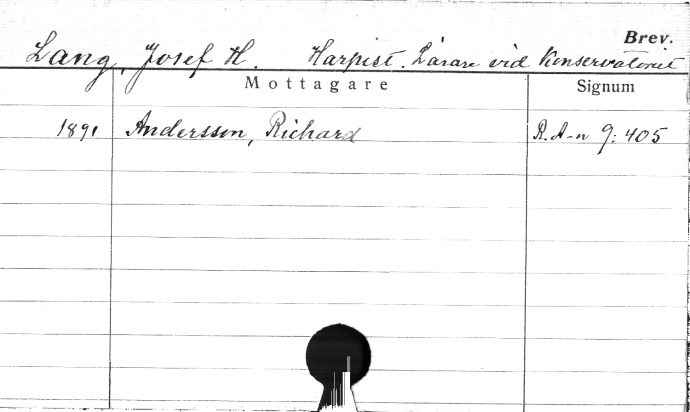 Brev.
Lang, Josef H. Harpist. Lärare vid Konservatoriet
Mottagare Signum
1891 Andersson, Richard R. A-n 9:405